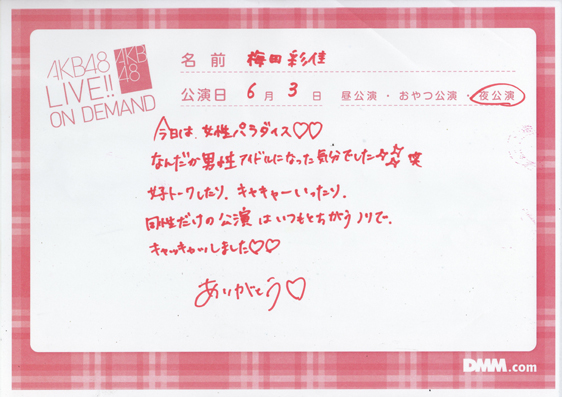 AKB48
LIVE!!
ON DEMAND
AKB
48
名前 梅田彩佳
公演日 6月3日 昼公演・おやつ公演・夜公演
今日は、女性パラダイス♡♡
なんだか男性アイドルになった気分でした☆☆☆笑
女子トークしたり、キャキャーいったり、
同性だけの公演はいつもとちがうノリで、
キャッキャッしました♡♡
ありがとう♡
DMM.com